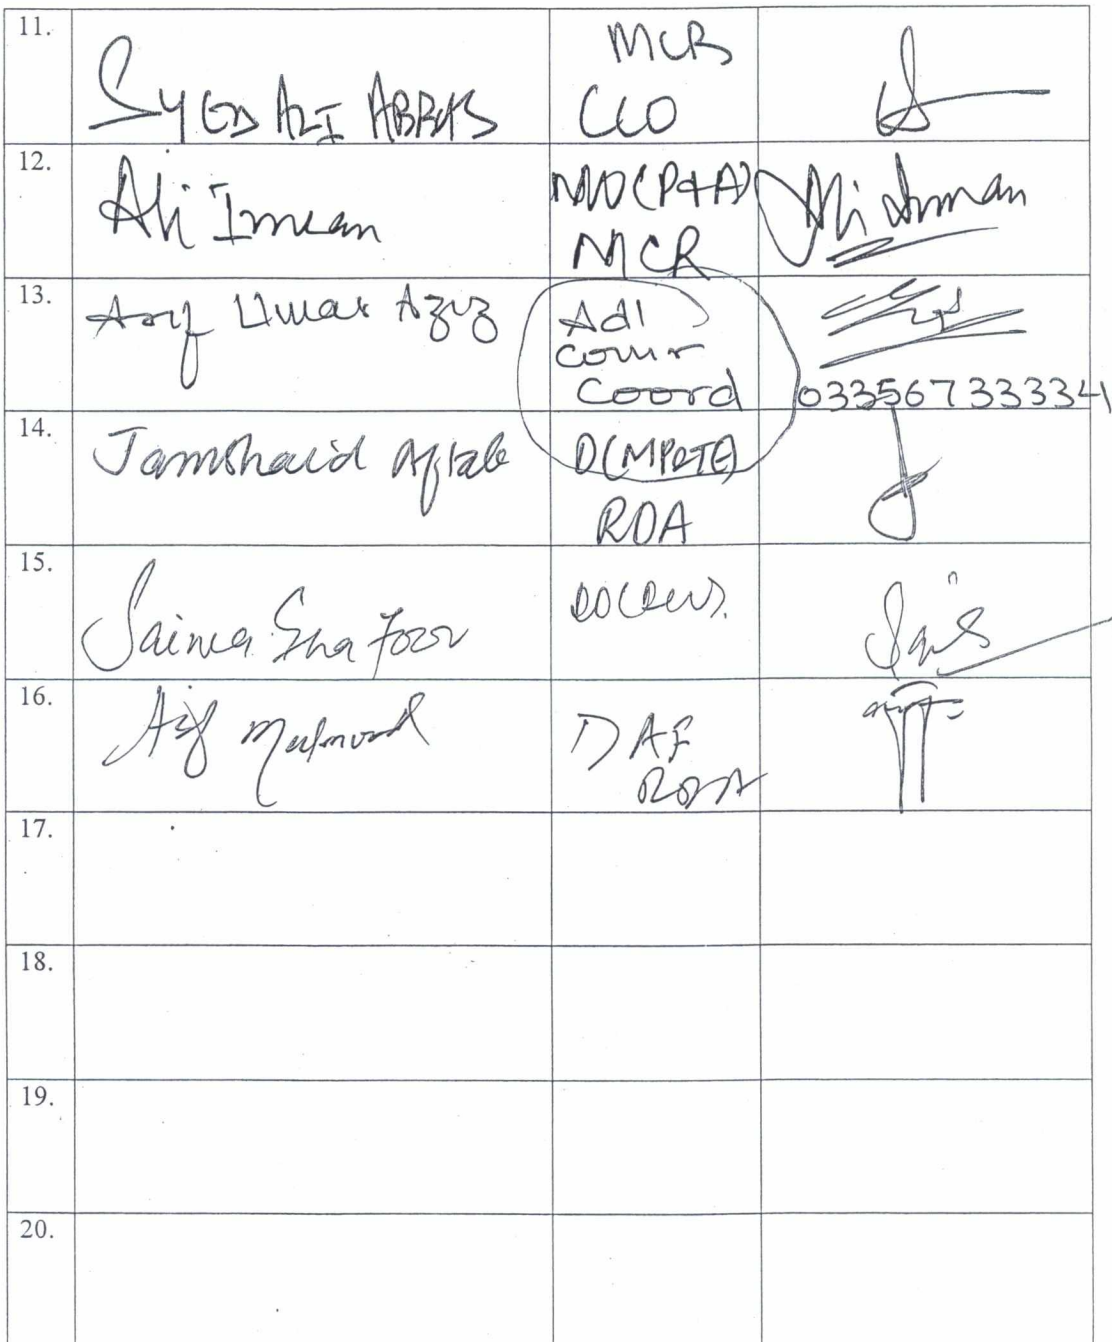 11.
SYED ALI ABBAS
MCR
CCO
12.
Ali Imran
MO(P&A)
MCR
Ali Imran
13.
Asif Umar Aziz
Adl
Comr
Coord
03356733334
14.
Jamshaid Aftab
D(MP&TE)
RDA
15.
Saima
16.
Asif Mehmood
DAF
RDA
17.
18.
19.
20.